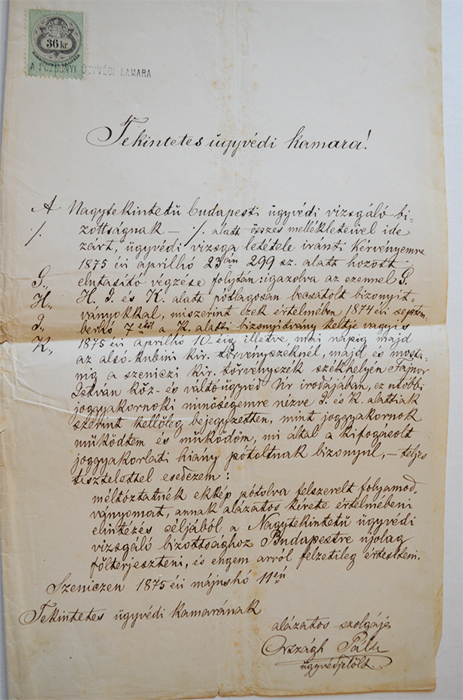 36 kr
A POZSONYI ÜGYVÉDI KAMARA
Tekintetes ügyvédi kamara!
A Nagytekintetű budapesti ügyvédi vizsgáló bi-
zottságnak – ./. alatt összes mellékleteivel ide
./.
zárt, ügyvédi vizsga letétele iránti kérvényemre
1875 évi aprilhó 23án 299 sz. alatt hozott
elutasító végzése folytán: igazolva az ezennel G.
G.,
H. I. és K. alatt pótlagosan becsatolt bizonyít-
H.,
ványokkal, miszerint ezek értelmében 1874 évi septem-
I.,
berhó 7től a K. alatti bizonyitvány keltje vagyis
K.,
1875 évi aprilhó 10 éig illetve, mai napig majd
az alsó-kubini kir. törvényszéknél, majd és most
míg a szeniczi kir. törvényszék székhelyén
István köz- és váltó ügyvéd Úr irodájában, ez utóbbi
joggyakornoki minőségemre nézve I. és K. alattiak
szerint kellőleg bejegyzetten, mint joggyakornok
működtem és működöm, mi által a kifogásolt
joggyakorlati hiány pótoltnak bizonyul, – teljes
tisztelettel esedezem:
méltóztatnék ekkép pótolva felszerelt folyamod-
ványomat, annak alázatos kérete értelmébeni
elintézés céljából a Nagytekintetű ügyvédi
vizsgáló bizottsághoz Budapestre ujolag
fölterjeszteni, és engem arról felzetileg értesíteni.
Szeniczen 1875 évi májushó 11én
Tekintetes ügyvédi kamarának
alázatos szolgája
Országh Pál
ügyvédjelölt